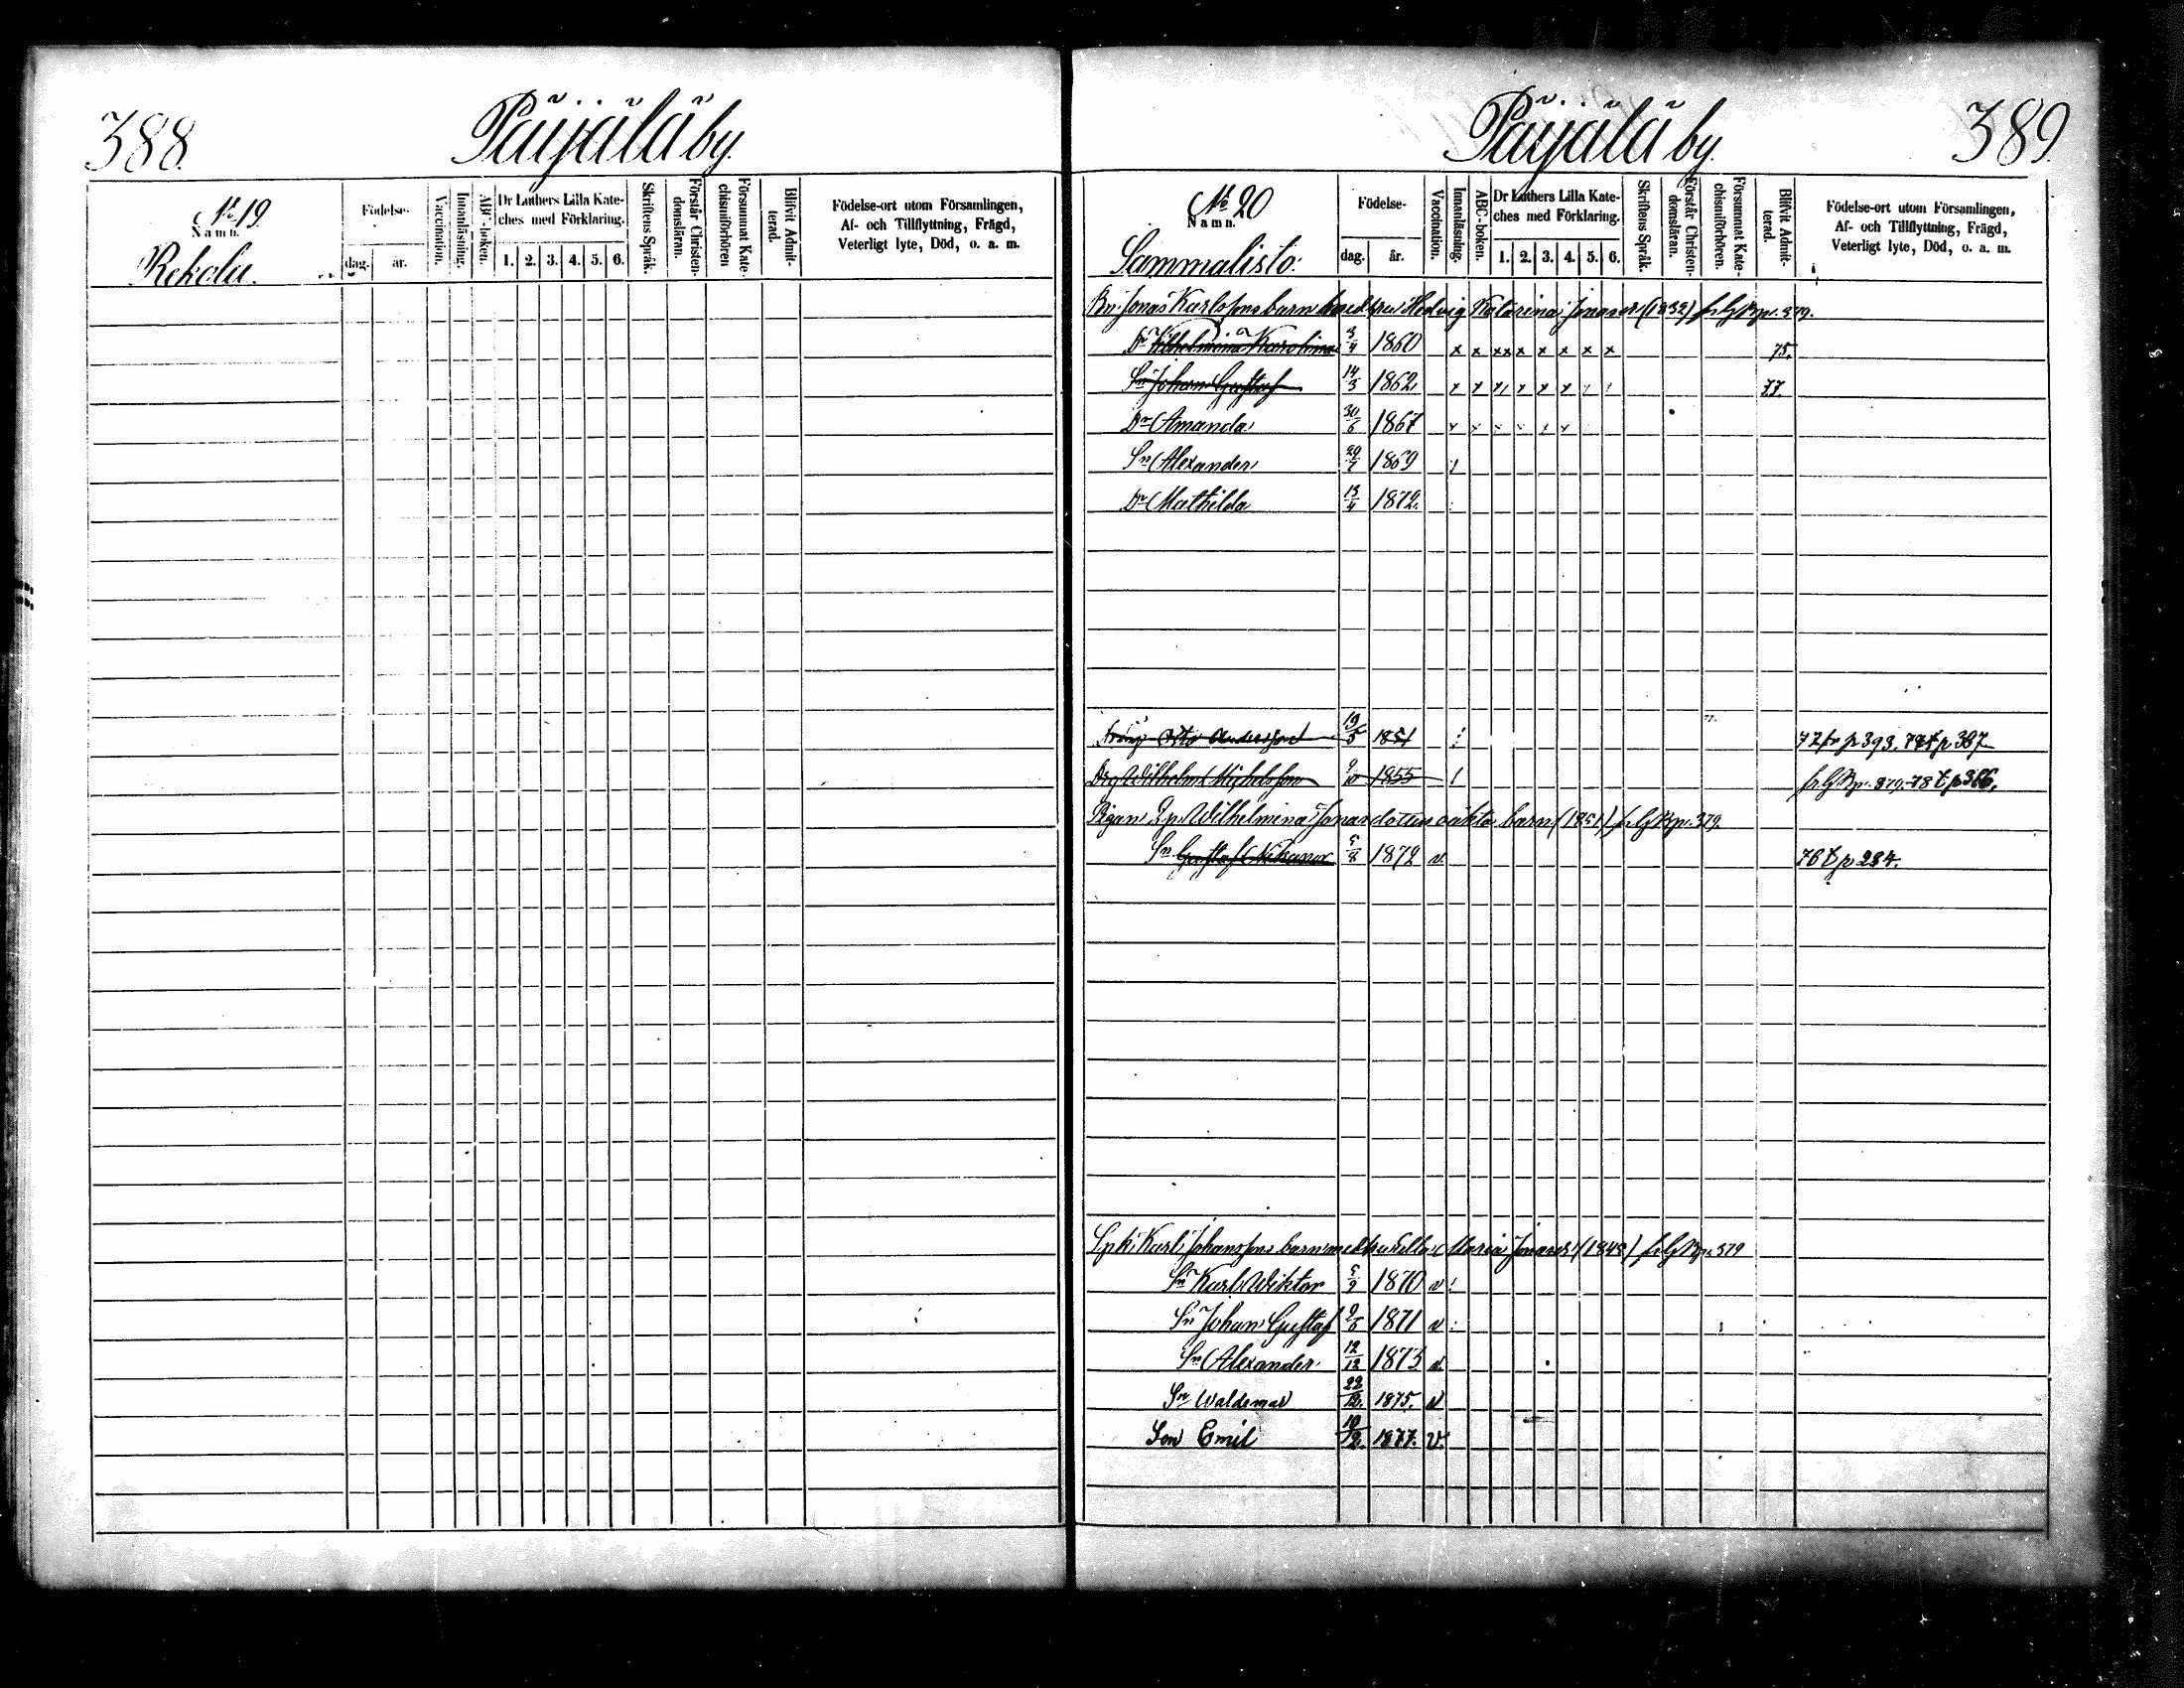 388.
Päijälä by.
№ 19
Namn.
Rekola.
Födelse-
dag. år.
Vaccination.
Innanläsning.
ABC-boken.
Dr Luthers Lilla Kate-
ches med Förklaring.
1. 2. 3. 4. 5. 6.
Skriftens Språk.
Förstår Christen-
domsläran.
Försummat Kate-
chismiförhören
Blifvit Admit-
terad.
Födelse-ort utom Församlingen,
Af- och Tillflyttning, Frägd,
Veterligt lyte, Död, o. a. m.
Päijälä by.
389.
№ 20
Namn.
Sammalisto.
Födelse-
dag. år.
Vaccination.
Innanläsning.
ABC-boken.
Dr Luthers Lilla Kate-
ches med Förklaring.
1. 2. 3. 4. 5. 6.
Skriftens Språk.
Förstår Christen-
domsläran.
Försummat Kate-
chismiförhören.
Blifvit Admit-
terad.
Födelse-ort utom Församlingen,
Af- och Tillflyttning, Frägd,
Veterligt lyte, Död, o. a. m.
Jonas Karlssons barn med hu Hedvig Katarina Jonasd (1832) p. 379.
Dr Vilhelmina Karolina 3/4 1860 x x x x x x x x x 75.
Sn Johan Gustaf 14/3 1862 x x x x x x 77.
Dr Amanda 30/6 1867 x x x x x x
Sn Alexander 1869
Dr Mathilda 13/4 1872.
Otto Andersson 19/5 1851 72 fr p 393. p 387
Drg Wilhelm Michelsson 1855 p. 379. 78 t p 386.
Pigan Wilhelmina Jonasdotters oäkta barn (1851) p. 379.
Sn Gustaf Nikanor 5/8 1872 v. 76 t p 284.
Karl Johanssons barn med hu Ulla Maria Jonasd (1848) p. 379
Sn Karl Wiktor 5/9 1870 v
Sn Johan Gustaf 1871 v
Sn Alexander 12/12 1873 v.
Sn Waldemar 22/12. 1875. v
Son Emil 10/12. 1877. v.